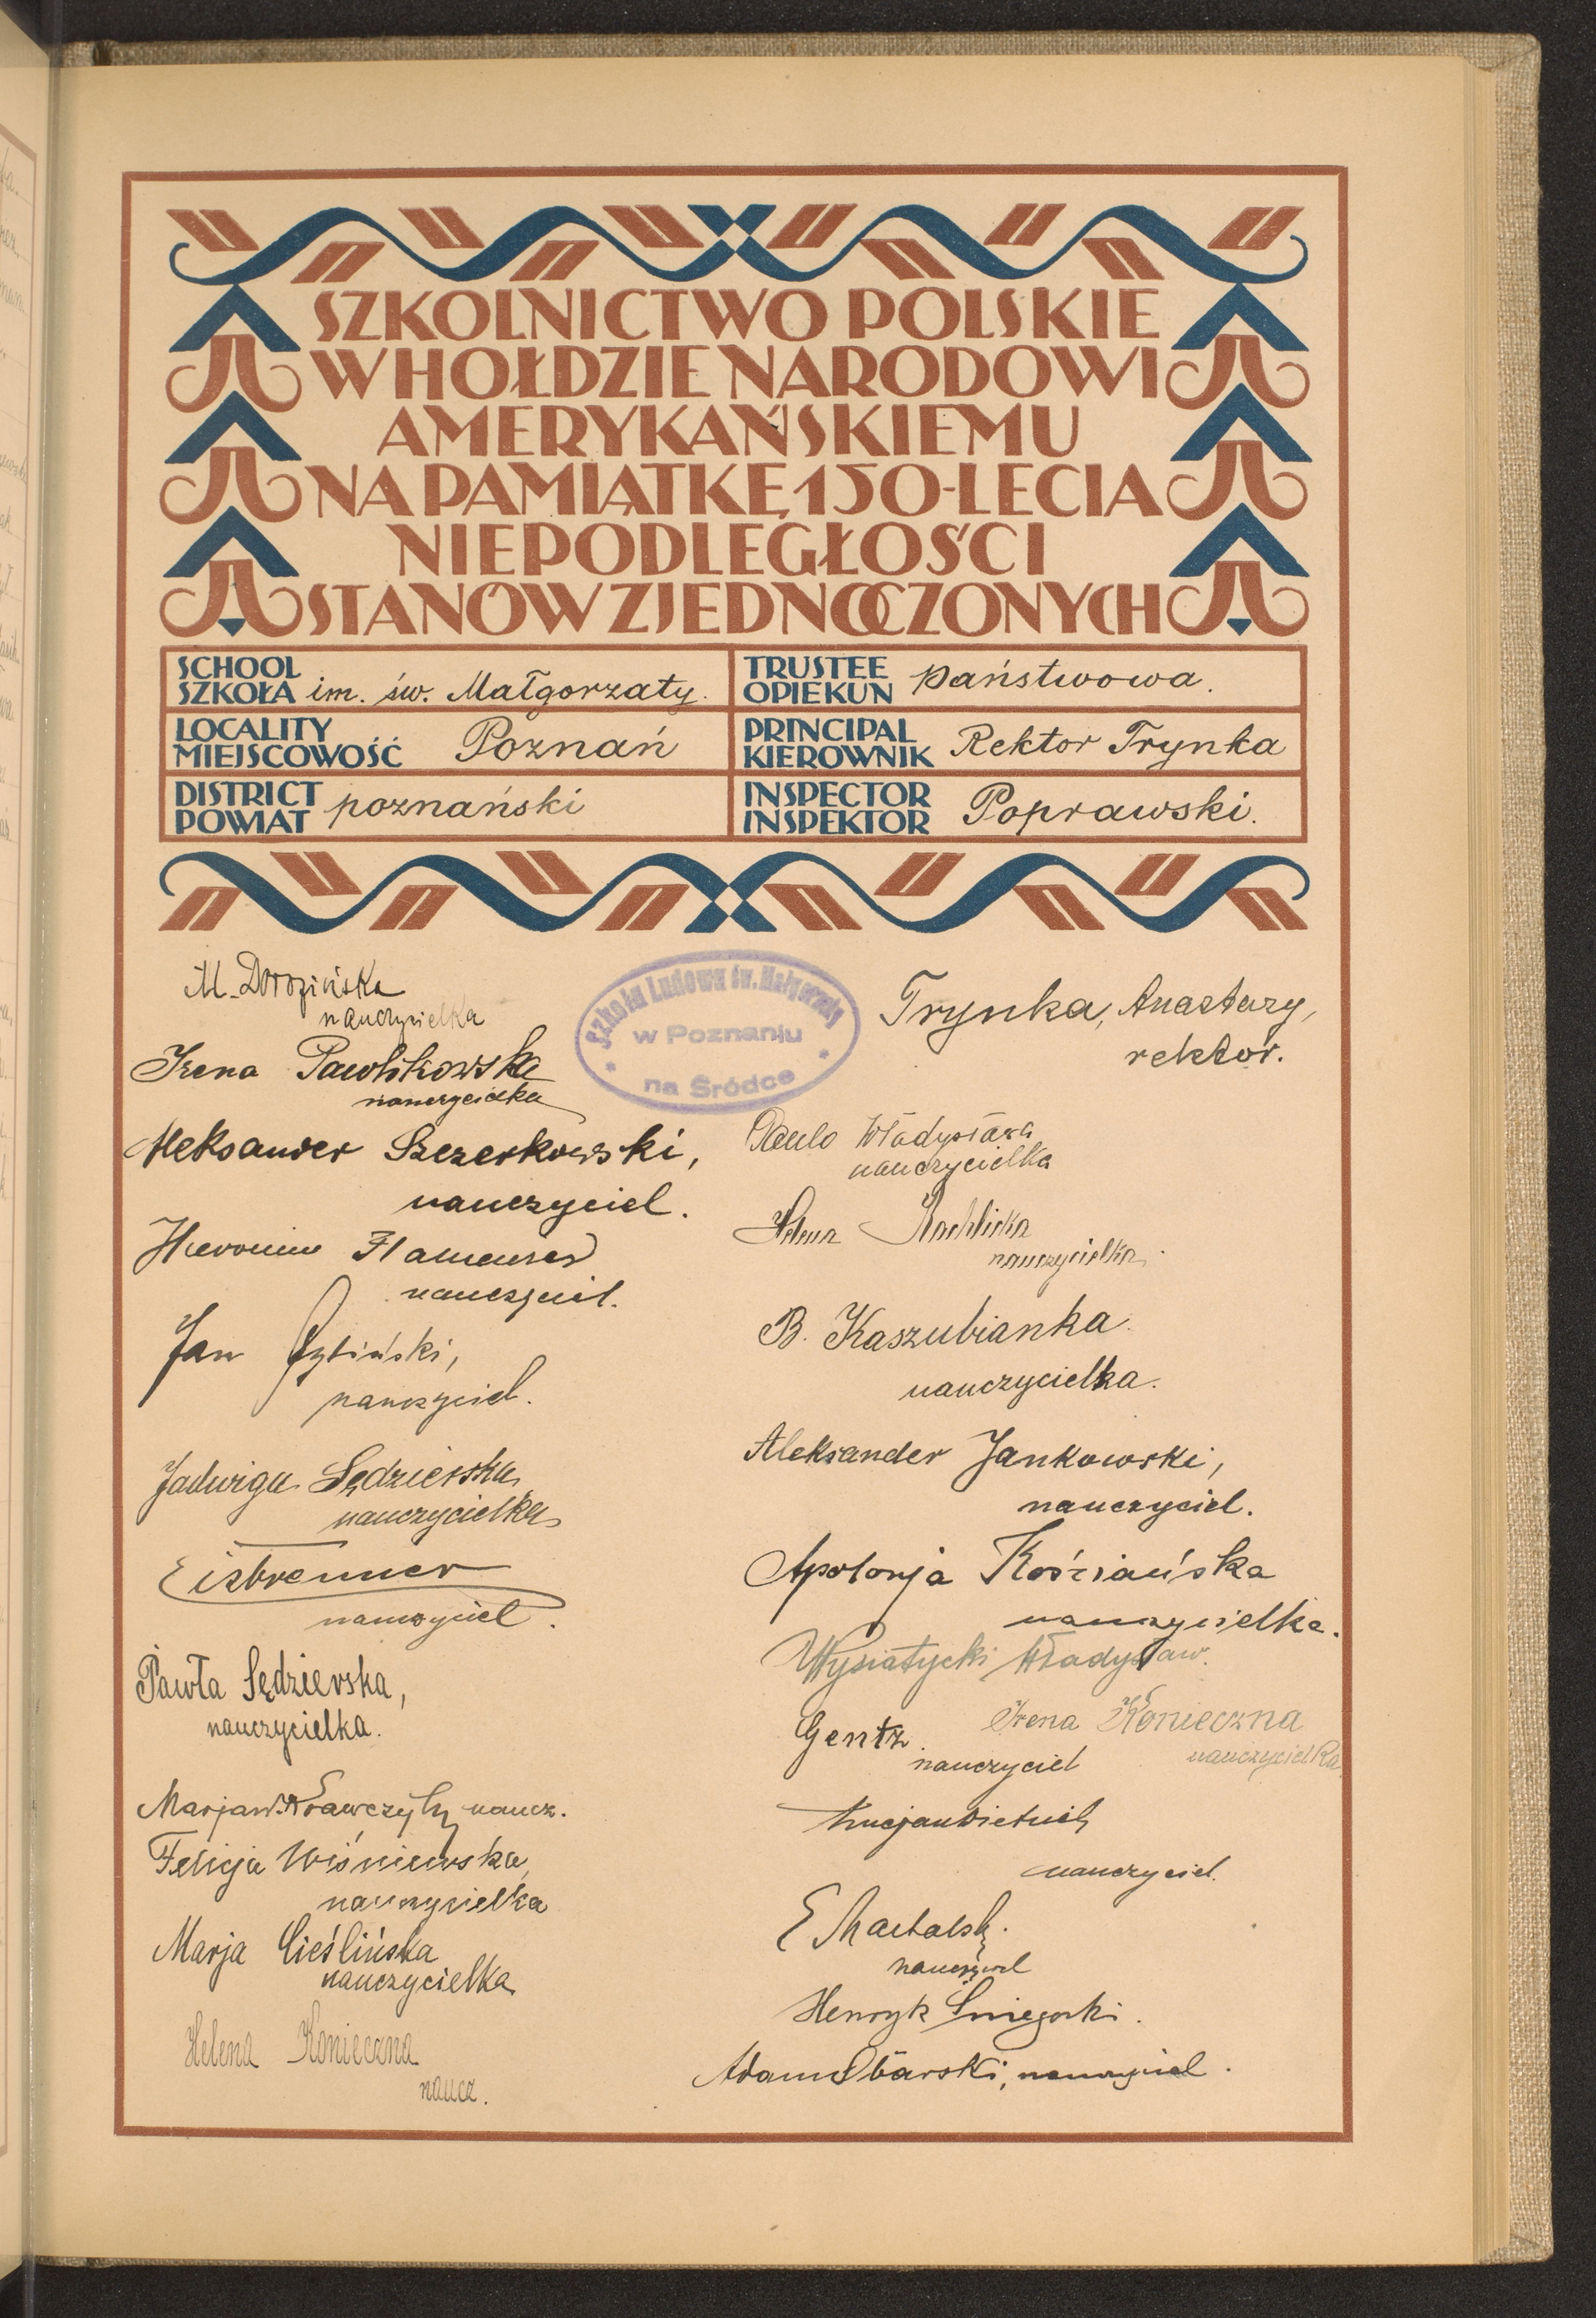 SZKOLNICTWO POLSKIE
W HOŁDZIE NARODOWI
AMERYKAŃSKIEMU
NA PAMIĄTKĘ 150-LECIA
NIEPODLEGŁOŚCI
STANÓW ZJEDNOCZONYCH
SCHOOL
SZKOŁA im. św. Małgorzaty.
TRUSTEE
OPIEKUN Państwowa.
LOCALITY
MIEJSCOWOŚĆ Poznań
PRINCIPAL
KIEROWNIK Rektor Trynka
DISTRICT
POWIAT poznański
INSPECTOR
INSPEKTOR Poprawski.
Szkoła Ludowa św. Małgorzaty
w Poznaniu
na Śródce
M. Dorozińska
nauczycielka
Irena Pawlikowska
nauczycielka
Aleksander Szczerkowski,
nauczyciel.
Hieronim
nauczyciel.
Jan
nauczyciel.
Jadwiga Sędzierska,
nauczycielka
Eisbrenner
nauczyciel.
Pawła Sędzierska,
nauczycielka.
Marjan Krawczyk naucz.
Felicja Wiśniewska,
nauczycielka
Marja Cieślińska
nauczycielka
Helena Konieczna
naucz.
Trynka, Anastazy,
rektor.
Paulo Władysława
nauczycielka
Helena
nauczycielka.
B. Kaszubianka.
nauczycielka.
Aleksander Jankowski,
nauczyciel.
Apolonja Kościańska
nauczycielka.
Wysiatycki Władysław.
Gentz.
nauczyciel
Irena Konieczna
nauczycielka
nauczyciel.
E
nauczyciel
Henryk Śniegocki.
Adam Obarski, nauczyciel.